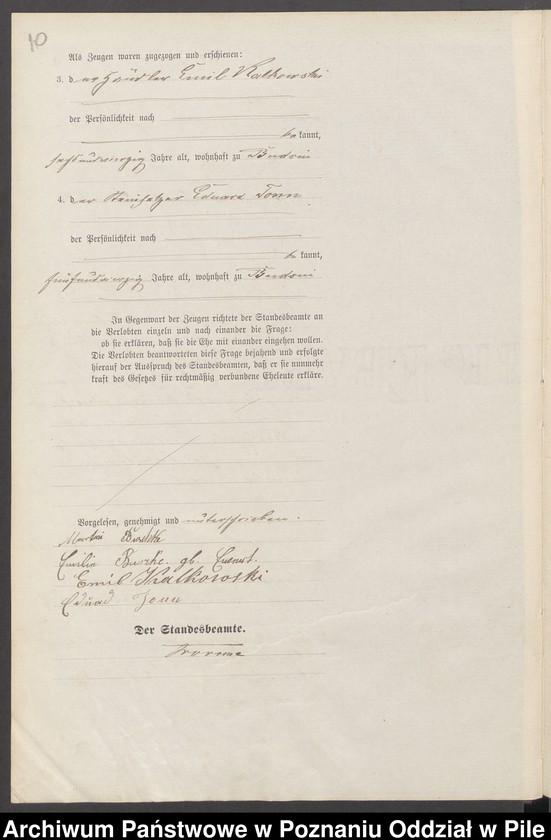 10
Als Zeugen waren zugezogen und erschienen:
3. der Händler Emil Kalkowski
der Persönlichkeit nach
be kannt,
sechsundvierzig Jahre alt, wohnhaft zu
4. der Steinsetzer Eduard
der Persönlichkeit nach
be kannt,
fünfundvierzig Jahre alt, wohnhaft zu
In Gegenwart der Zeugen richtete der Standesbeamte an
die Verlobten einzeln und nach einander die Frage:
ob sie erklären, daß sie die Ehe mit einander eingehen wollen.
Die Verlobten beantworteten diese Frage bejahend und erfolgte
hierauf der Ausspruch des Standesbeamten, daß er sie nunmehr
kraft des Gesetzes für rechtmäßig verbundene Eheleute erkläre.
Vorgelesen, genehmigt und unterschrieben.
Martin
Emilie gb.
Emil Kalkowski
Eduad
Der Standesbeamte.
Archiwum Państwowe w Poznaniu Oddział w Pile